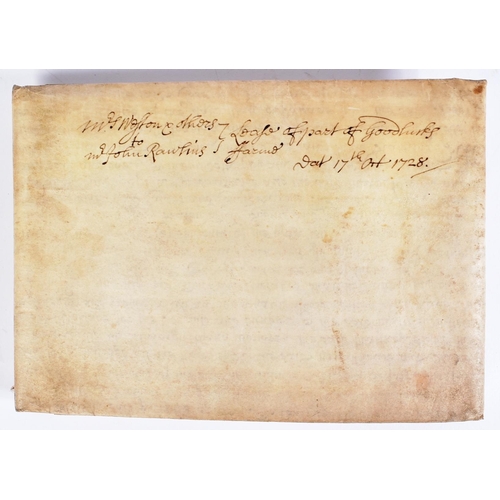 Mrs Weston & others } Lease of part of Goodlucks
to
Mr John Rawlins } Farme
Dat 17th Oct 1728.